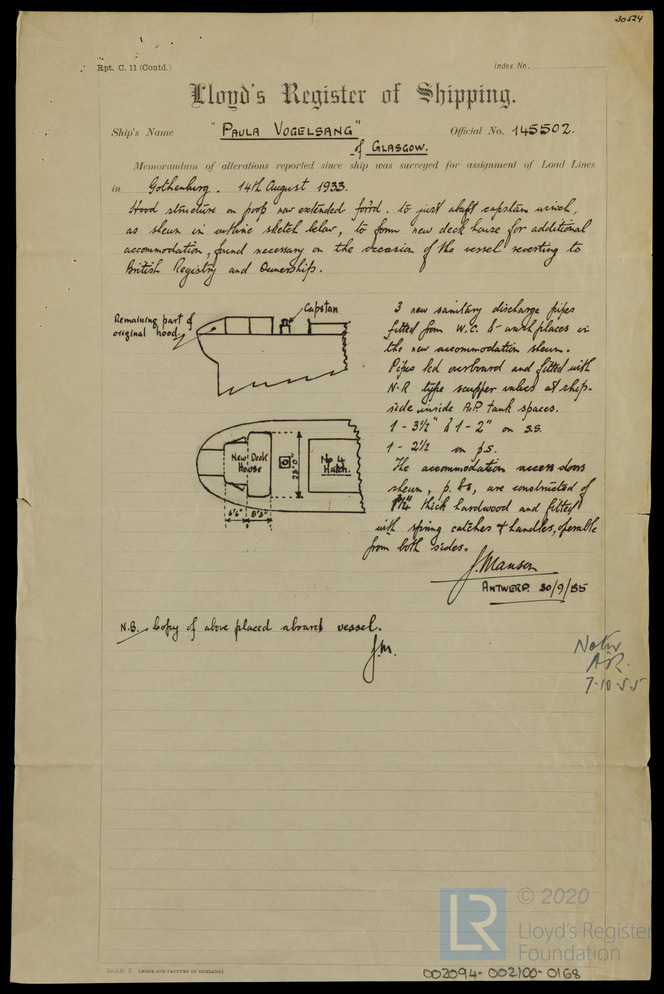 30524
Rpt. C. 11 (Contd.)
Index No.
Lloyd's Register of Shipping.
Ship's Name "PAULA VOGELSANG" Official No. 145502.
of GLASGOW.
Memorandum of alterations reported since ship was surveyed for assignment of Load Lines
in Gothenburg. 14th August 1933.
Hood structure on poop now extended for'd. to just abaft capstan winch,
as shewn in outline sketch below, to form new deck house for additional
accommodation, found necessary on the occasion of the vessel reverting to
British Registry and Ownership.
Remaining part of
original hood.
Capstan
3 new sanitary discharge pipes
fitted from W.C. & wash places in
the new accommodation shewn.
Pipes led overboard and fitted with
N-R type scupper valves at ship-
side inside A.P. tank spaces.
1 - 3½" & 1 - 2" on s.s.
1 - 2½ on p.s.
The accommodation access doors
shewn, p. & s, are constructed of
thick hardwood and fitted
with spring catches & handles, operable
from both sides.
New Deck
House
23'-0"
No 4
Hatch.
J. Manson
ANTWERP. 30/9/55
N.B. Copy of above placed aboard vessel.
J.M.
7-10-55
(MADE AND PRINTED IN ENGLAND)
LR
© 2020
Lloyd's Register
Foundation
002094-002100-0168